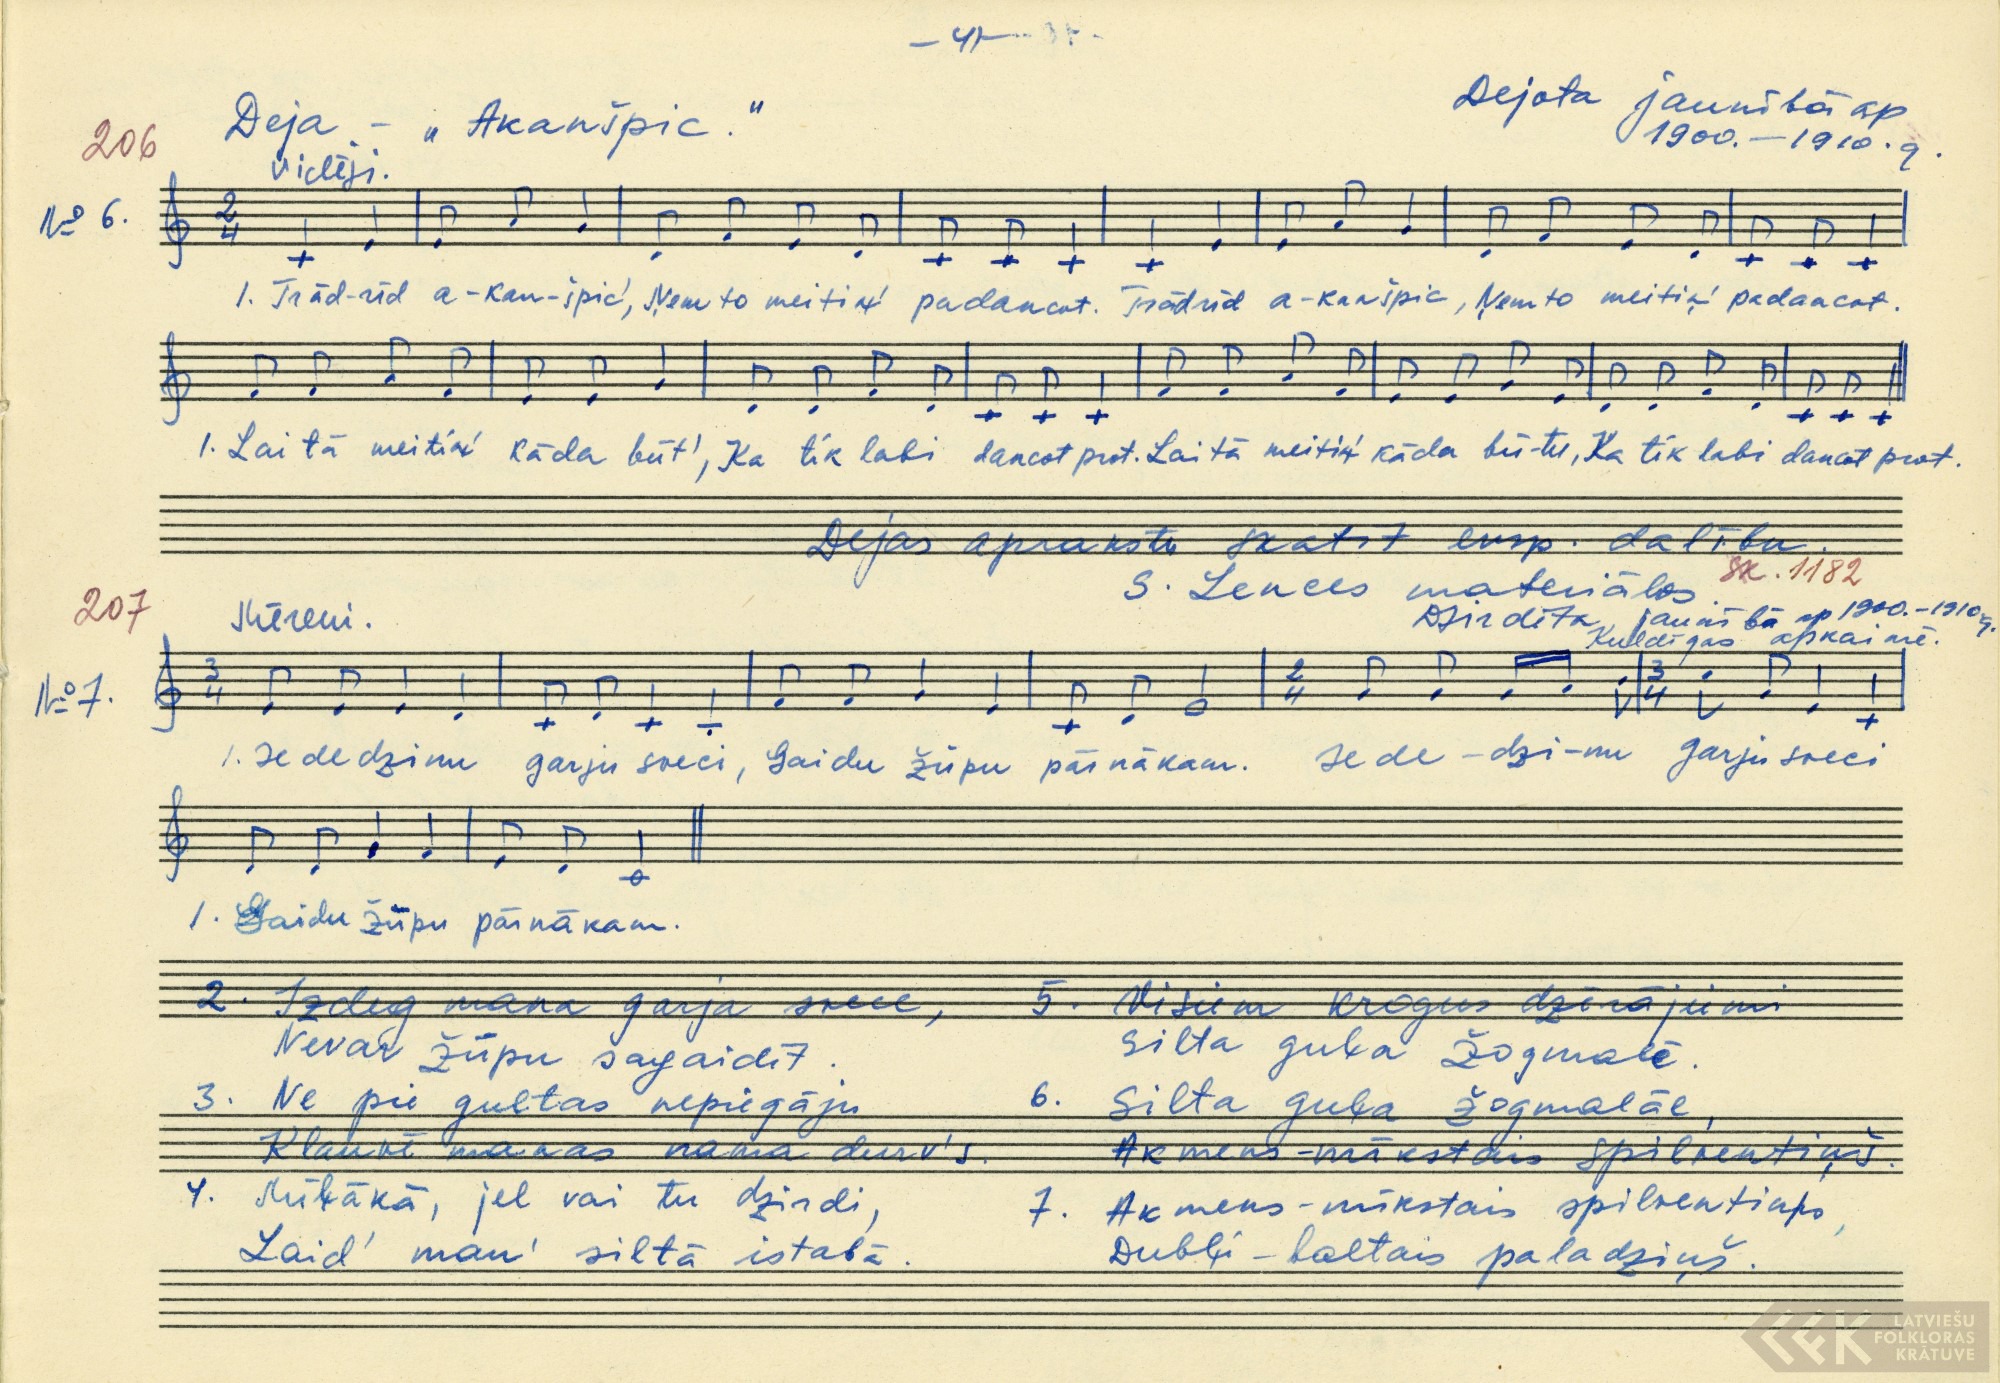 – 41 –
Deja – „Akanšpic."
Dejota jaunībā ap
1900. – 1910. g.
206
Vidēji.
№ 6.
2
4
1. Trād-rīd a-kan-špic', Ņem to meitiņ' padancot. Trādrīd a-kanšpic, Ņem to meitiņ' padancot.
1. Lai tā meitiņ' kāda būt', Ka tik labi dancot prot. Lai tā meitiņ' kāda bū-tu, Ka tik labi dancot prot.
Dejas aprakstu skatīt eksp. dalībn.
S. Lences materiālos sk. 1182
207
Mēreni.
Dzirdēta jaunībā ap 1900. – 1910 g.
Kuldīgas apkaimē.
№ 7.
3
4
2
4
3
4
1. Iededzinu garju sveci, Gaidu žūpu pārnākam. Iede-dzi-nu garju sveci
1. Gaidu žūpu pārnākam.
2. Izdeg mana garja svece,
Nevar žūpu sagaidīt.
3. Ne pie gultas nepiegāju
Klauvē manas nama durv's.
4. Mīļākā, jel vai tu dzirdi,
Laid' man' siltā istabā.
5. Visiem krogus dzērājiemi
Silta guļa žogmalē.
6. Silta guļa žogmalāe,
Akmens – mīkstais spilventiņš.
7. Akmens – mīkstais spilventiņš,
Dubļi – baltais paladziņš.
LATVIEŠU
FOLKLORAS
KRĀTUVE